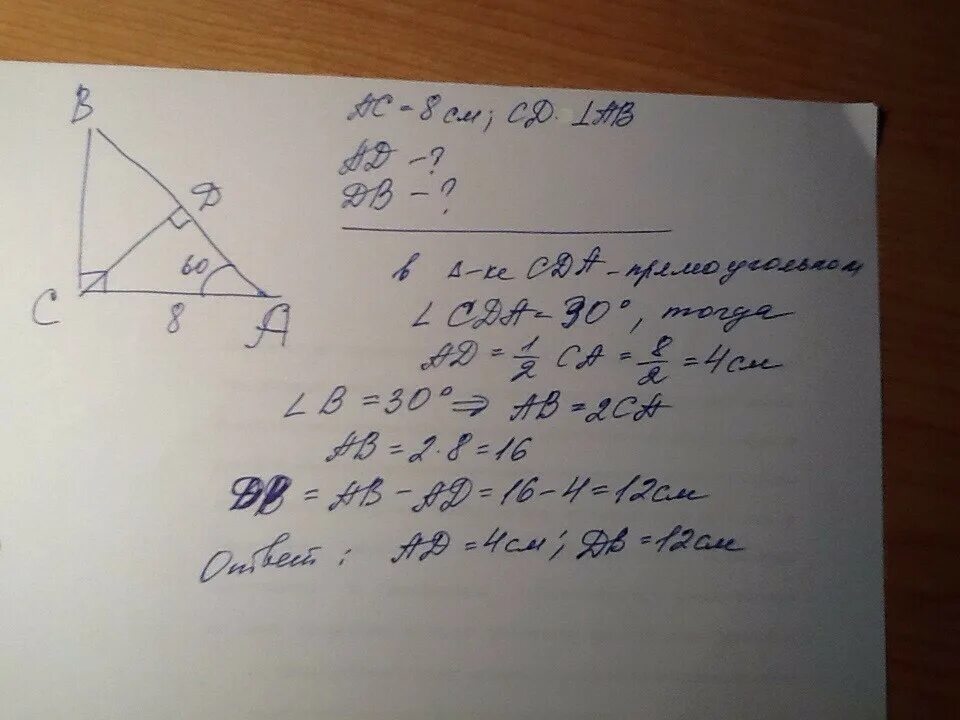 B
D
60
C
8
A
AC = 8 см; CD ⊥ AB
AD - ?
DB - ?
в Δ-ке CDA - прямоугольном
∠ CDA = 30°, тогда
AD = 1/2 CA = 8/2 = 4 см
∠ B = 30° ⇒ AB = 2CA
AB = 2·8 = 16
DB = AB - AD = 16 - 4 = 12 см
Ответ: AD = 4 см; DB = 12 см